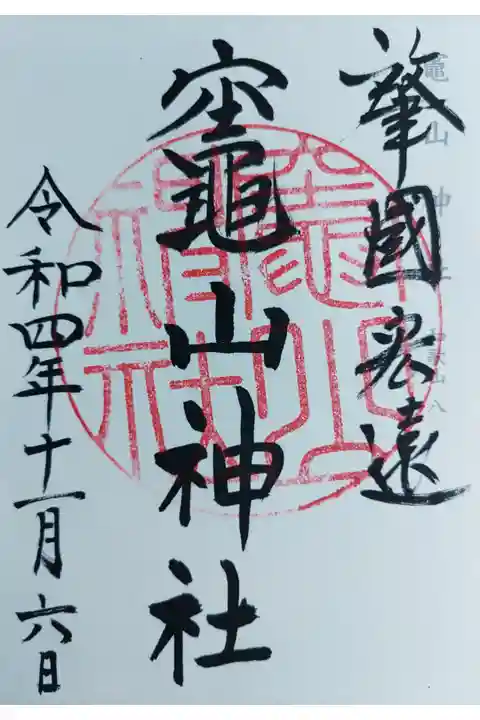 肇國宏遠
竈山神社
令和四年十一月六日
竈山神社